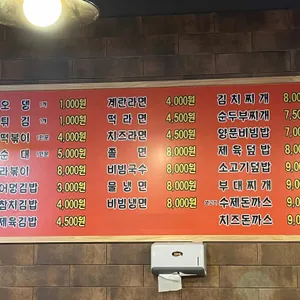 오 뎅 1개 1,000원
튀 김 1개 1,000원
떡볶이 4,000원
순 대 5,000원
라볶이 8,000원
어멍김밥 3,000원
참치김밥 4,000원
제육김밥 4,500원
계란라면 4,000원
떡 라 면 4,500원
치즈라면 4,500원
쫄 면 8,000원
비빔국수 8,000원
물 냉 면 8,000원
비빔냉면 8,000원
김치찌개 8,0
순두부찌개 7,50
양푼비빔밥 7,0
제 육 덮 밥 8,0
소고기덮밥 9,0
부 대 찌 개 9,0
수제돈까스 9,0
치즈돈까스 9,0